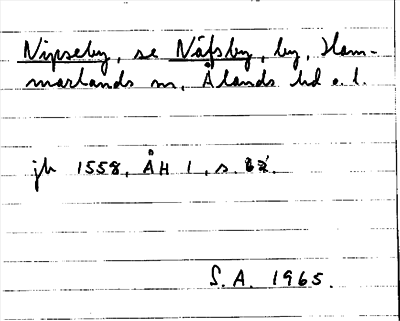 Nipseby, se Näfsby, by, Ham-
marlands sn, Ålands hd o. l.
jb 1558, ÅH 1, s.
S.A. 1965.